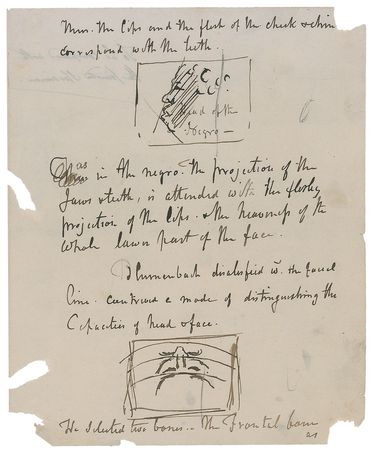 Thus. the lips and the flesh of the cheek & chin
correspond with the teeth.
Head of the
Negro —
as in the negro. the projection of the
jaws & teeth, is attended with the fleshy
projection of the lips. & the heaviness of the
whole lower part of the face.
Blumenbach disatisfied w. the facial
line. contrived a mode of distinguishing the
Capacities of head & face.
He selected two bones. – the Frontal bone
as